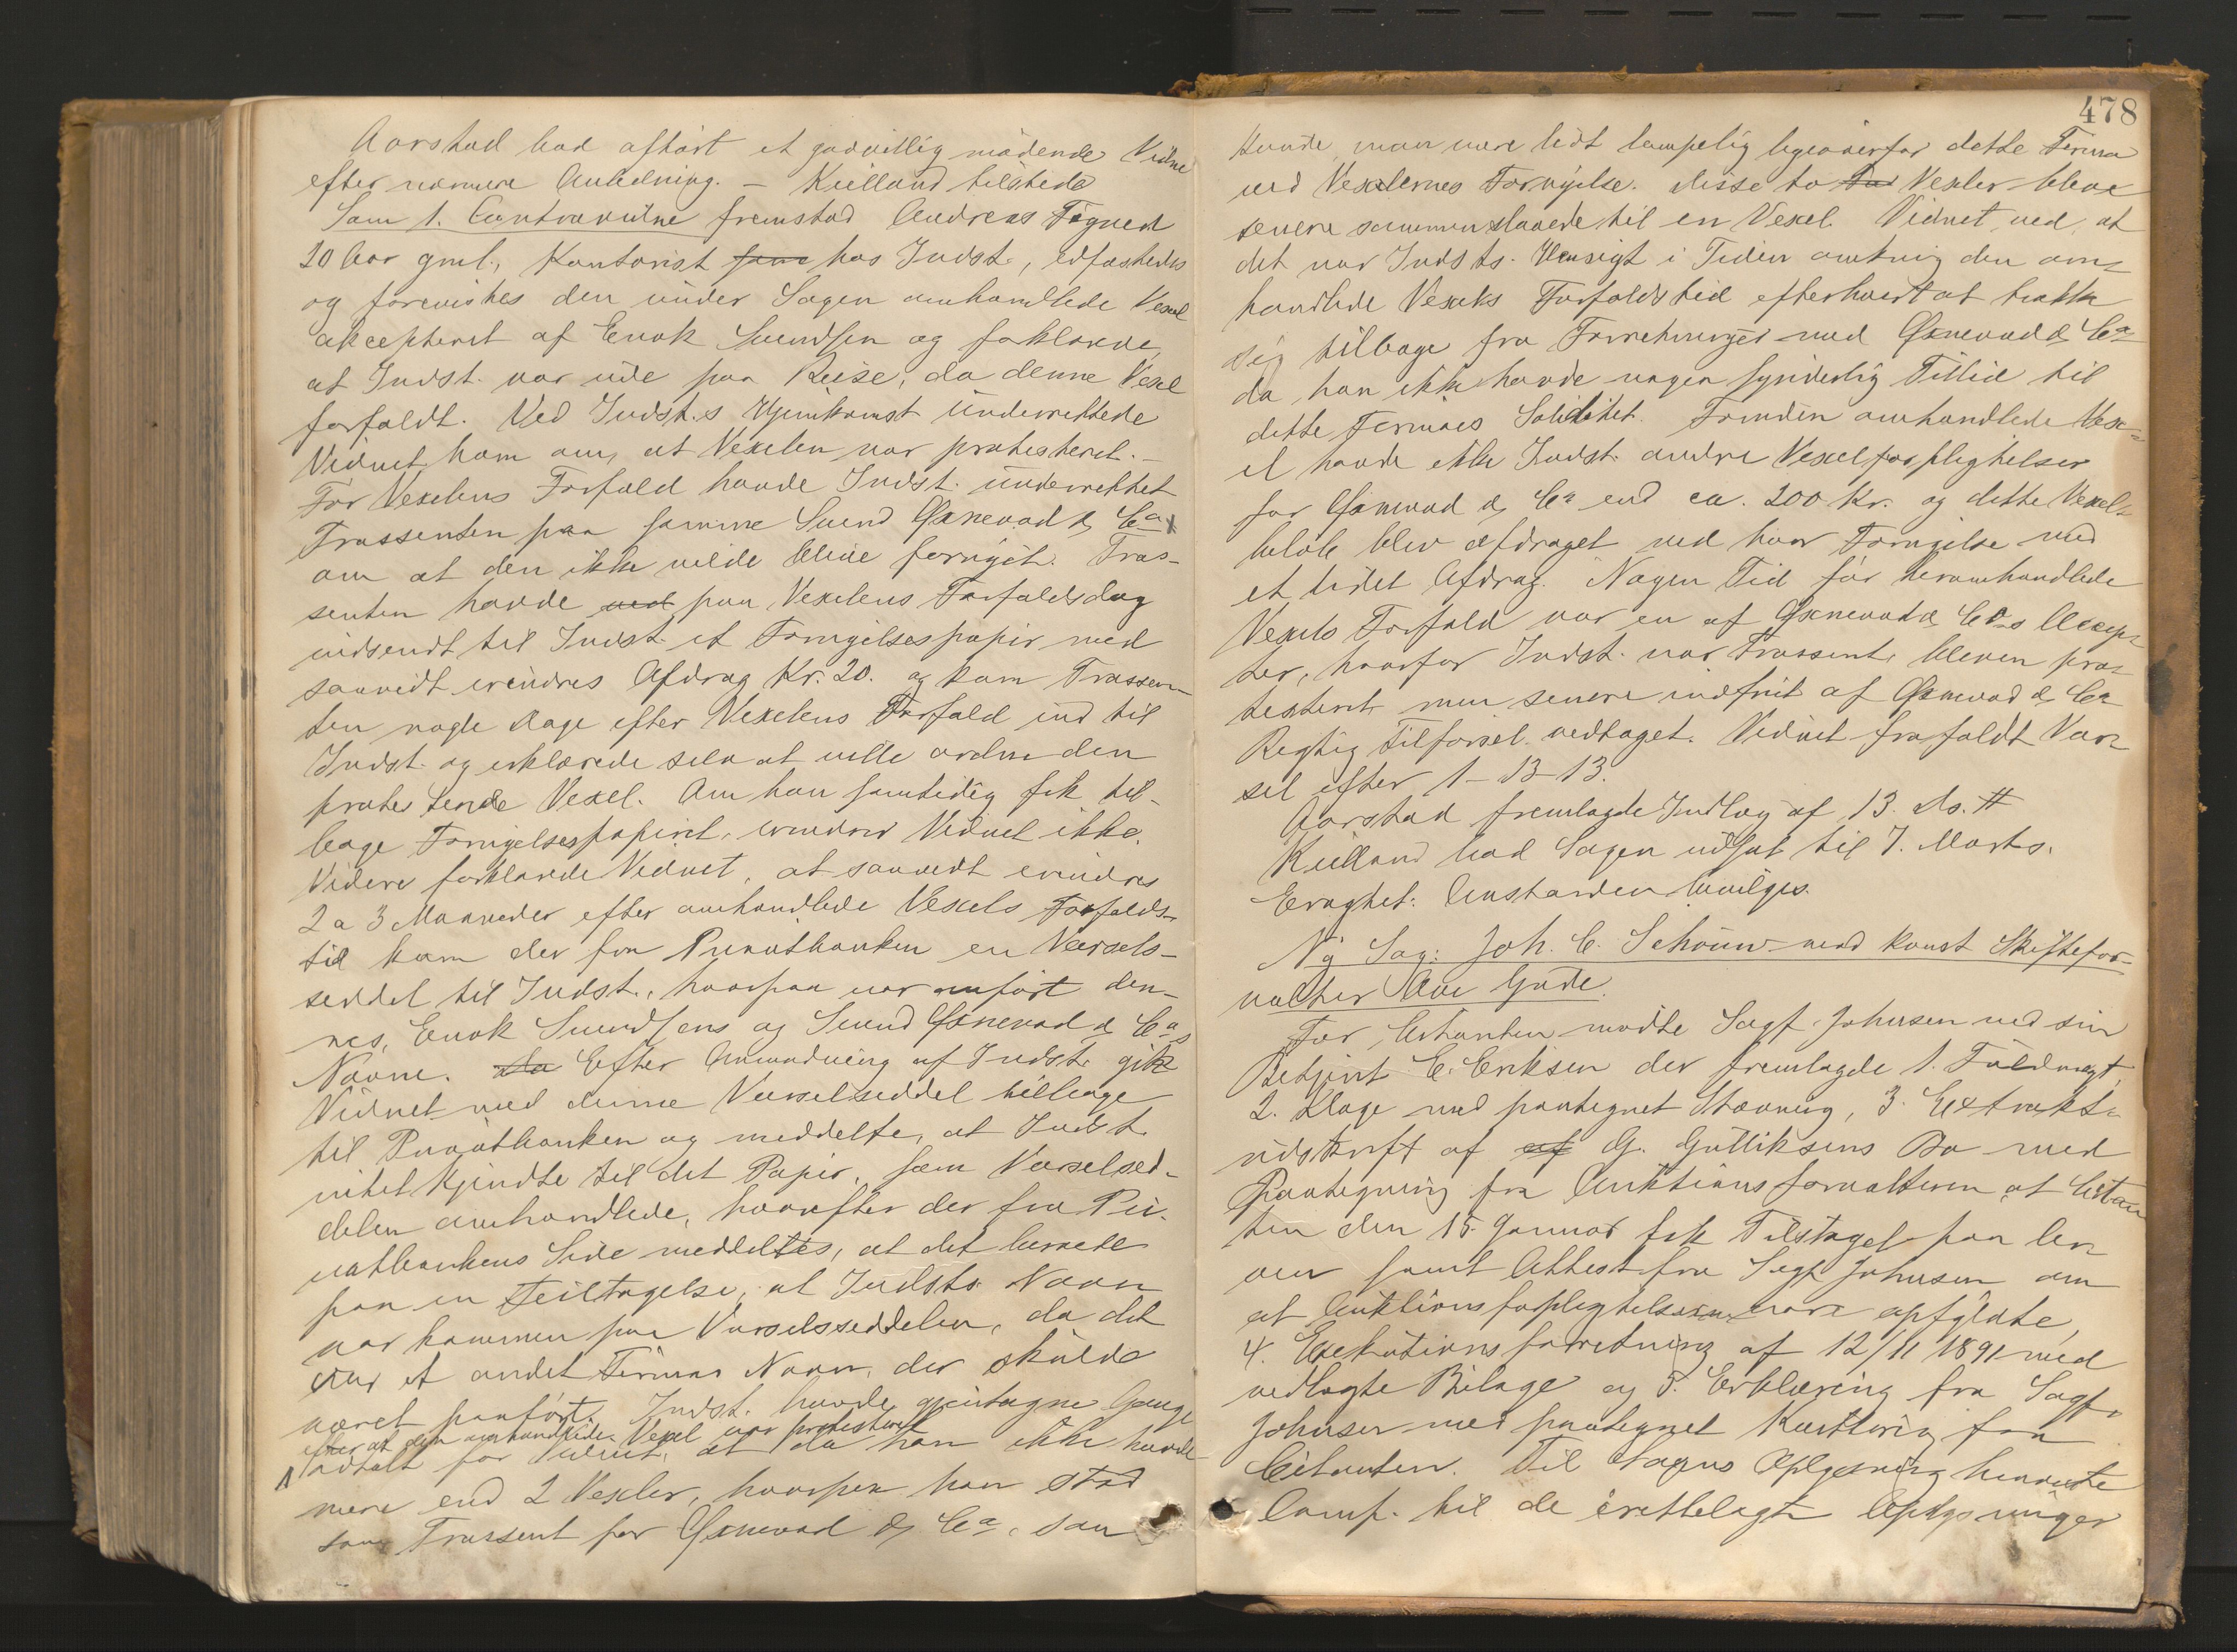 Aarstad bad afhørt et godvillig mødende Vidne
efter nærmere Anledning. – Kielland tilstede
Som 1. Contravidne fremstod Andreas
20 Aar gml., Kontorist som hos Indst., edfæstedes
og forevistes den under Sagen omhandlede Vexel
akcepteret af Enok Svendsen og forklarede
at Indst. var ude paa Reise, da denne Vexel
forfaldt. Ved Indst.s Hjemkomst underrettede
Vidnet ham om, at Vexelen var protesteret. –
Før Vexelens Forfald havde Indst. underrettet
Trassenten paa samme Svend Oxnevad & Co
om at den ikke vilde blive fornyet. Tras-
senten havde ved paa Vexelens Forfaldsdag
indsendt til Indst. et Fornyelsespapir med
saavidt erindres Afdrag Kr. 20. og kom Trassen-
ten nogle Dage efter Vexelens Forfald ind til
Indst. og erklærede selv at ville ordne den
protesterede Vexel. Om han samtidig fik til-
bage Fornyelsespapiret, erindrer Vidnet ikke.
Videre forklarede Vidnet, at saavidt erindres
2 a 3 Maaneder efter omhandlede Vexels Forfalds-
tid kom der fra Privatbanken en Varsels-
seddel til Indst., hvorpaa var anført den-
nes, Enok Svendsens og Svend Oxnevad & Co.s
Navne. Da Efter Anmodning af Indst. gik
Vidnet med denne Varselsseddel tilbage
til Privatbanken og meddelte, at Indst.
intet kjendte til det Papir, som Varselsed-
delen omhandlede, hvorefter der fra Pri-
vatbankens Side meddeltes, at det beroede
paa en Feiltagelse, at Indsts Navn
var kommen paa Varselsseddelen, da det
var et andet Firmas Navn, der skulde
været paaført. Indst. havde gjentagne Gange
efter at den omhandlede Vexel var protesteret
udtalt for Vidnet, at da han ikke havde
mere end 2 Vexler, hvorpaa han stod
som Trassent for Oxnevad & Co., saa
478
kunde man være lidt lempelig ligeoverfor dette Firma
ved Vexlernes Fornyelse. Disse to Vexler bleve
senere sammenslaaede til en Vexel. Vidnet ved, at
det var Indsts. Hensigt i Tiden omkring den om-
handlede Vexels Forfaldstid efterhvert at trække
sig tilbage fra Forretninger med Oxnevad & Co
da han ikke havde nogen synderlig Tillid til
dette Firmaes Soliditet. Foruden omhandlede Vex-
el havde ikke Indst. andre Vexelforpligtelser
for Oxnevad & Co end ca. 200 Kr. og dette Vexel-
beløb blev afdraget ved hver Fornyelse med
et lidet Afdrag. Nogen Tid før heromhandlede
Vexels Forfald var en af Oxnevad & Co.s Accep-
ter, hvorfor Indst. var Trassent, bleven pro-
testeret men senere indfriet af Oxnevad & Co
Rigtig tilført vedtaget. Vidnet frafaldt Var-
sel efter 1–13–13.
Aarstad fremlagde Indlæg af 13. ds. #
Kielland bad Sagen udsat til 7. Marts.
Eragtet: Anstanden bevilges.
Ny Sag: Joh. C. Schouw mod konst Skiftefor-
valter Ove Gude.
For Citanten mødte Sagf. Johnsen ved sin
Betjent E. Eriksen der fremlagde 1. Fuldmagt,
2. Klage med paategnet Stævning, 3. Extrakt-
udskrift af af G. Gulliksens Bo med
Paategning fra Auktionsforvalteren at Citan-
ten den 15. Januar fik Tilslaget paa
samt Attest fra Sagf Johnsen om
at Auktionsforpligtelserne vare opfyldte,
4. Exekutionsforretning af 12/11 1891 med
vedlagte Bilage og 5. Erklæring fra Sagf.
Johnsen med paategnet Kvittering fra
Citanten. Til Sagens Oplysning henviste
Comp. til de irettelagte Oplysninger